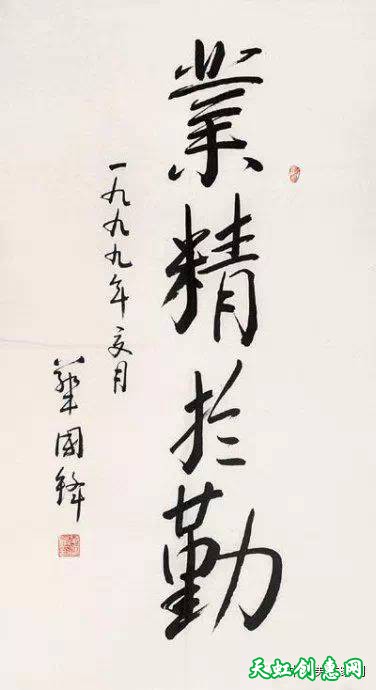 業精於勤
一九九九年夏月
華國鋒
天虹创意网